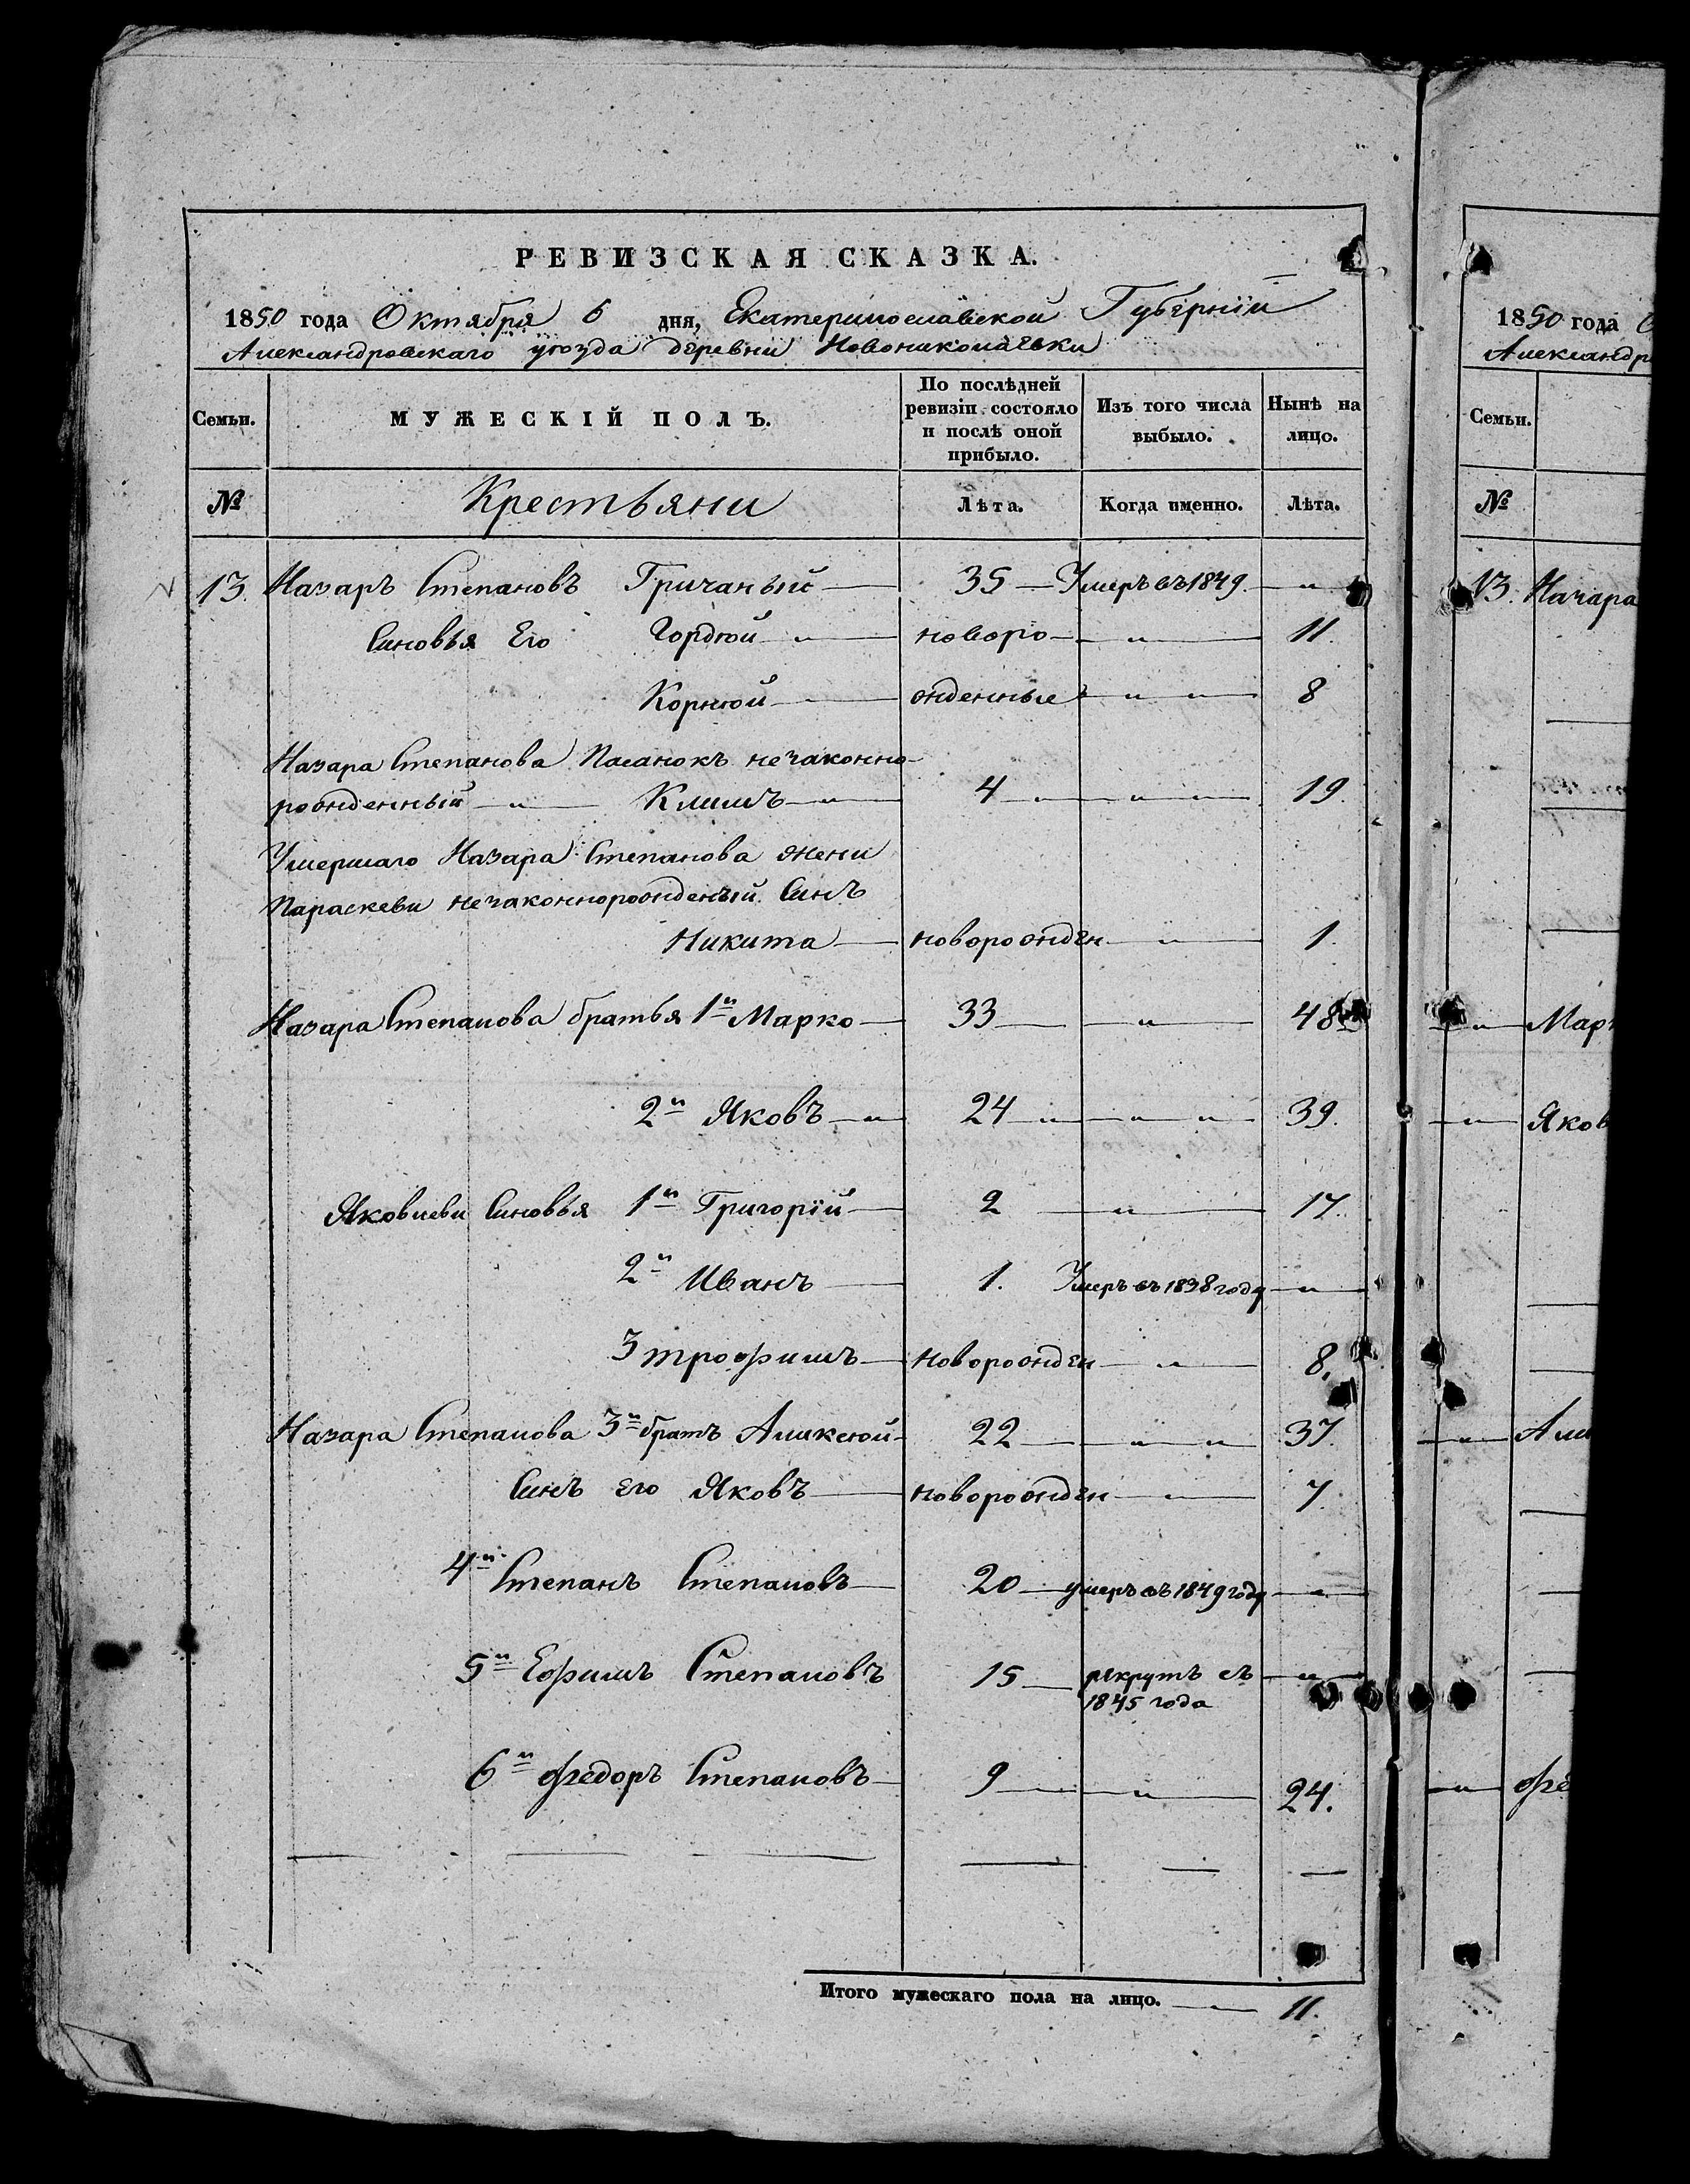 РЕВИЗСКАЯ СКАЗКА.
1850 года Октября 6 дня, Екатеринославской Губерніи
Александровскаго уѣзда деревни Новониколаевки
Семьи. МУЖЕСКІЙ ПОЛЪ. По послѣдней ревизіи состояло и послѣ оной прибыло. Изъ того числа выбыло. Нынѣ на лицо.
№ Крестьяни Лѣта. Когда именно. Лѣта.
13. Назаръ Степановъ Гричаный 35 Умеръ въ 1849 "
Синовья Его Гордѣй " новоро- " 11.
Корнѣй жденные " " 8
Назара Степанова Пасанокъ незаконно-
рожденный " Климъ " 4 " " " 19.
Умершаго Назара Степанова жени
Параскеви незаконнорожденый Синъ
Никита новорожден " 1.
Назара Степанова братья 1й Марко 33 " 48
2й Яковъ " 24 " " " 39.
Яковлеви Синовья 1й Григорій 2 " 17.
2й Иванъ 1. Умеръ въ 1838 году "
3 трофимъ новорожден " 8.
Назара Степанова 3й братъ Аликсѣй 22 " " 37.
Синъ Его Яковъ новорожден " 7.
4й Степанъ Степановъ 20 умеръ въ 1849 году "
5й Ефимъ Степановъ 15 рекрутъ съ "
1845 года
6й федоръ Степановъ 9 " 24.
Итого мужескаго пола на лицо. " 11.
1850 года
Александр
Семьи.
№
13. Назара
" Мар
" Яков
" Али
" фе